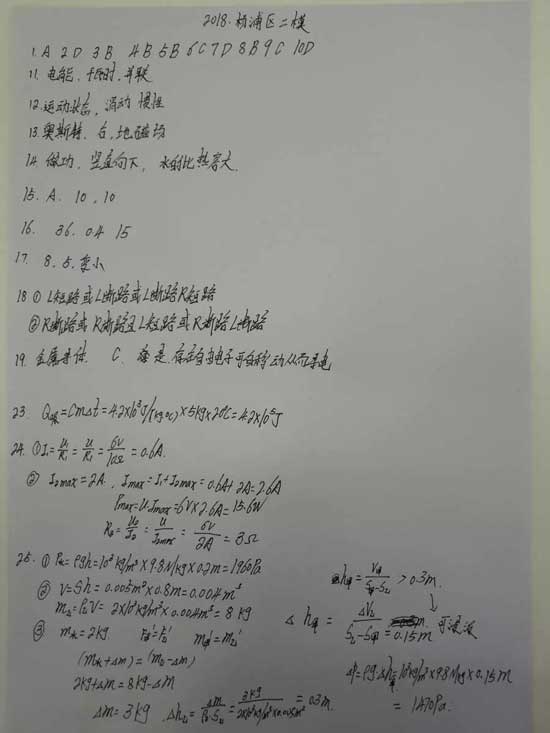 2018.杨浦区二模
1.A 2D 3B 4B 5B 6C 7D 8B 9C 10D
11.电能、千瓦时、并联
12.运动状态, 滑动 惯性
13.奥斯特、右、地磁场
14.做功、竖直向下, 水的比热容大.
15.A. 10, 10
16. 36. 0.4 15
17. 8.5.变小
18 ① L短路或L断路或L断路R短路
② R断路或R断路且L短路或R断路L断路
19. 金属导体. C. 存在自由电子可自由移动从而导电
23. Q吸=Cm△t=4.2×10³J/(kg℃)×5kg×20℃=4.2×10⁵J
24. ① I₁=U₁/R₁=U/R₁=6V/10Ω=0.6A.
② I₂max=2A. Imax=I₁+I₂max=0.6A+2A=2.6A
Pmax=U Imax=6V×2.6A=15.6W
R₂=U₂/I₂=U/I₂max=6V/2A=3Ω
25. ① P水=ρgh=10³kg/m³×9.8N/kg×0.2m=1960Pa
② V=Sh=0.005m²×0.8m=0.004m³
m乙=ρ乙V=2×10³kg/m³×0.004m³=8kg
③ m水=2kg F甲'=F乙' m甲'=m乙'
(m水+△m)=(m乙-△m)
2kg+△m=8kg-△m
△m=3kg △h乙=△m/ρ乙·S乙=3kg/2×10³kg/m³×0.005m²=0.3m.
h甲=V甲/S甲-S乙>0.3m.
△h甲=△V乙/S乙-S甲=0.15m 可浸没
△P=ρg△h甲=10³kg/m³×9.8N/kg×0.15m
=1470Pa.